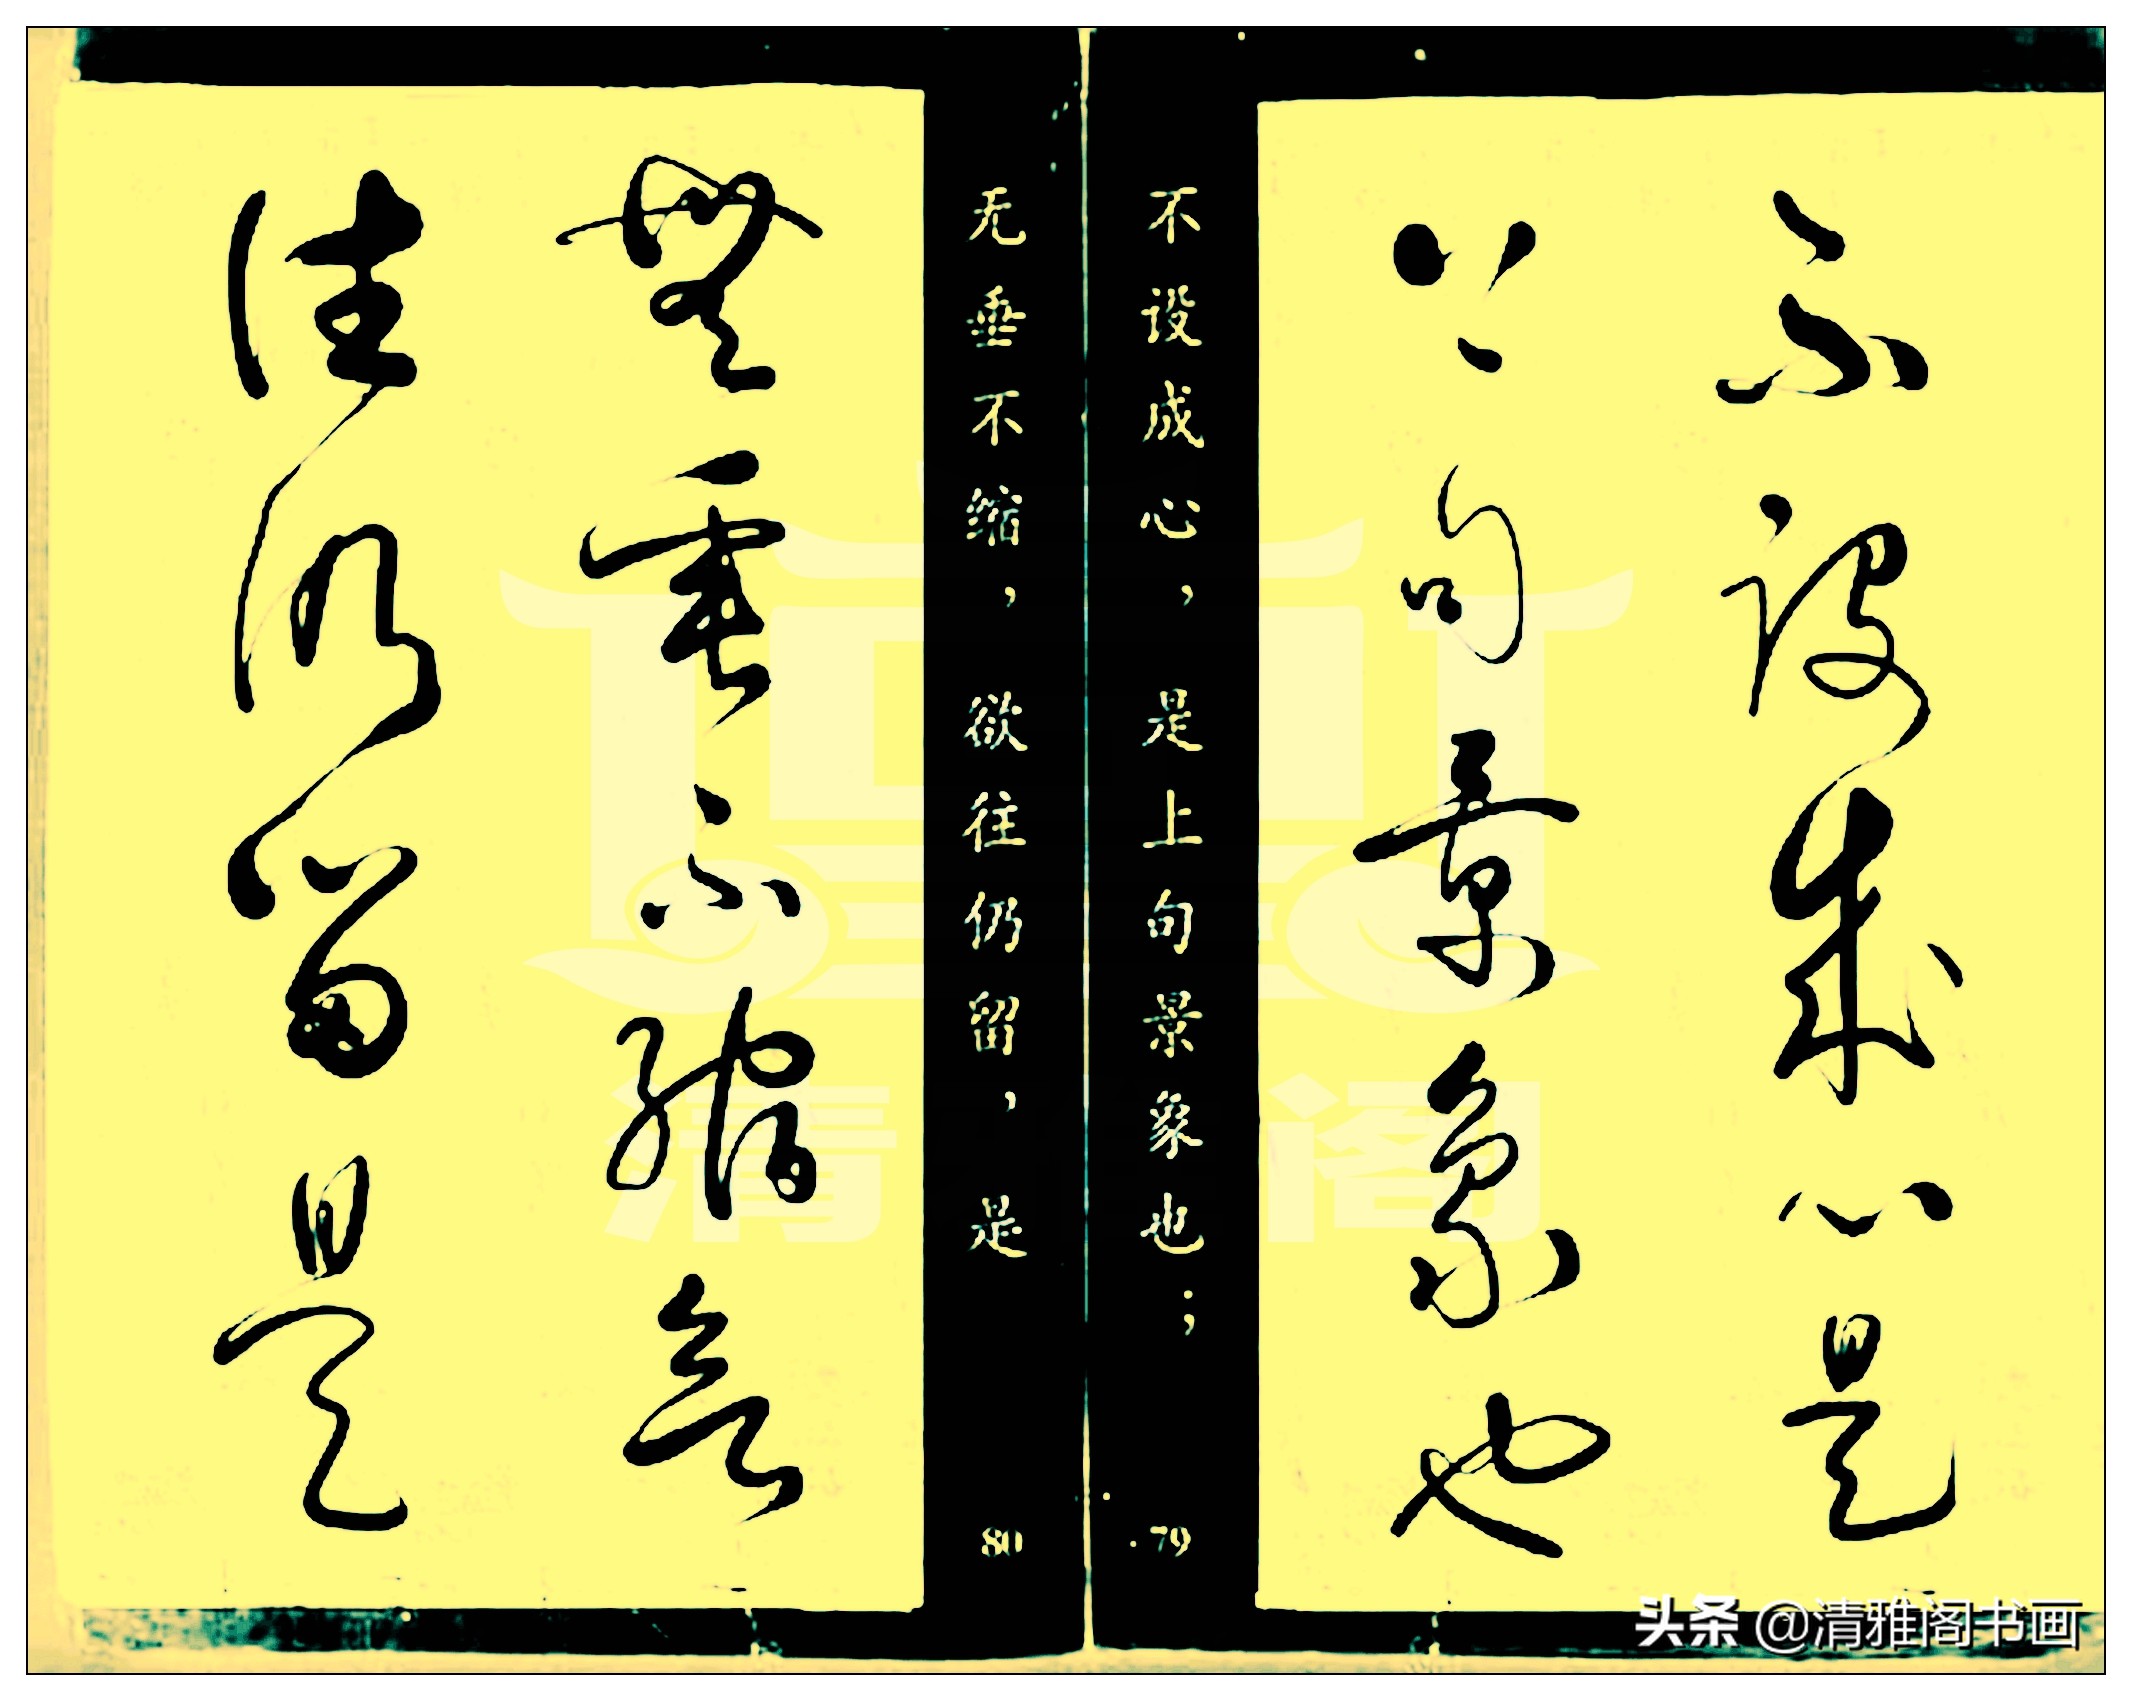 不設成心是
上句景象也
不设成心，是上句景象也；
79
无垂不缩，欲往仍留，是
80
無垂不縮欲
往仍留是
清 阁
头条 @清雅阁书画